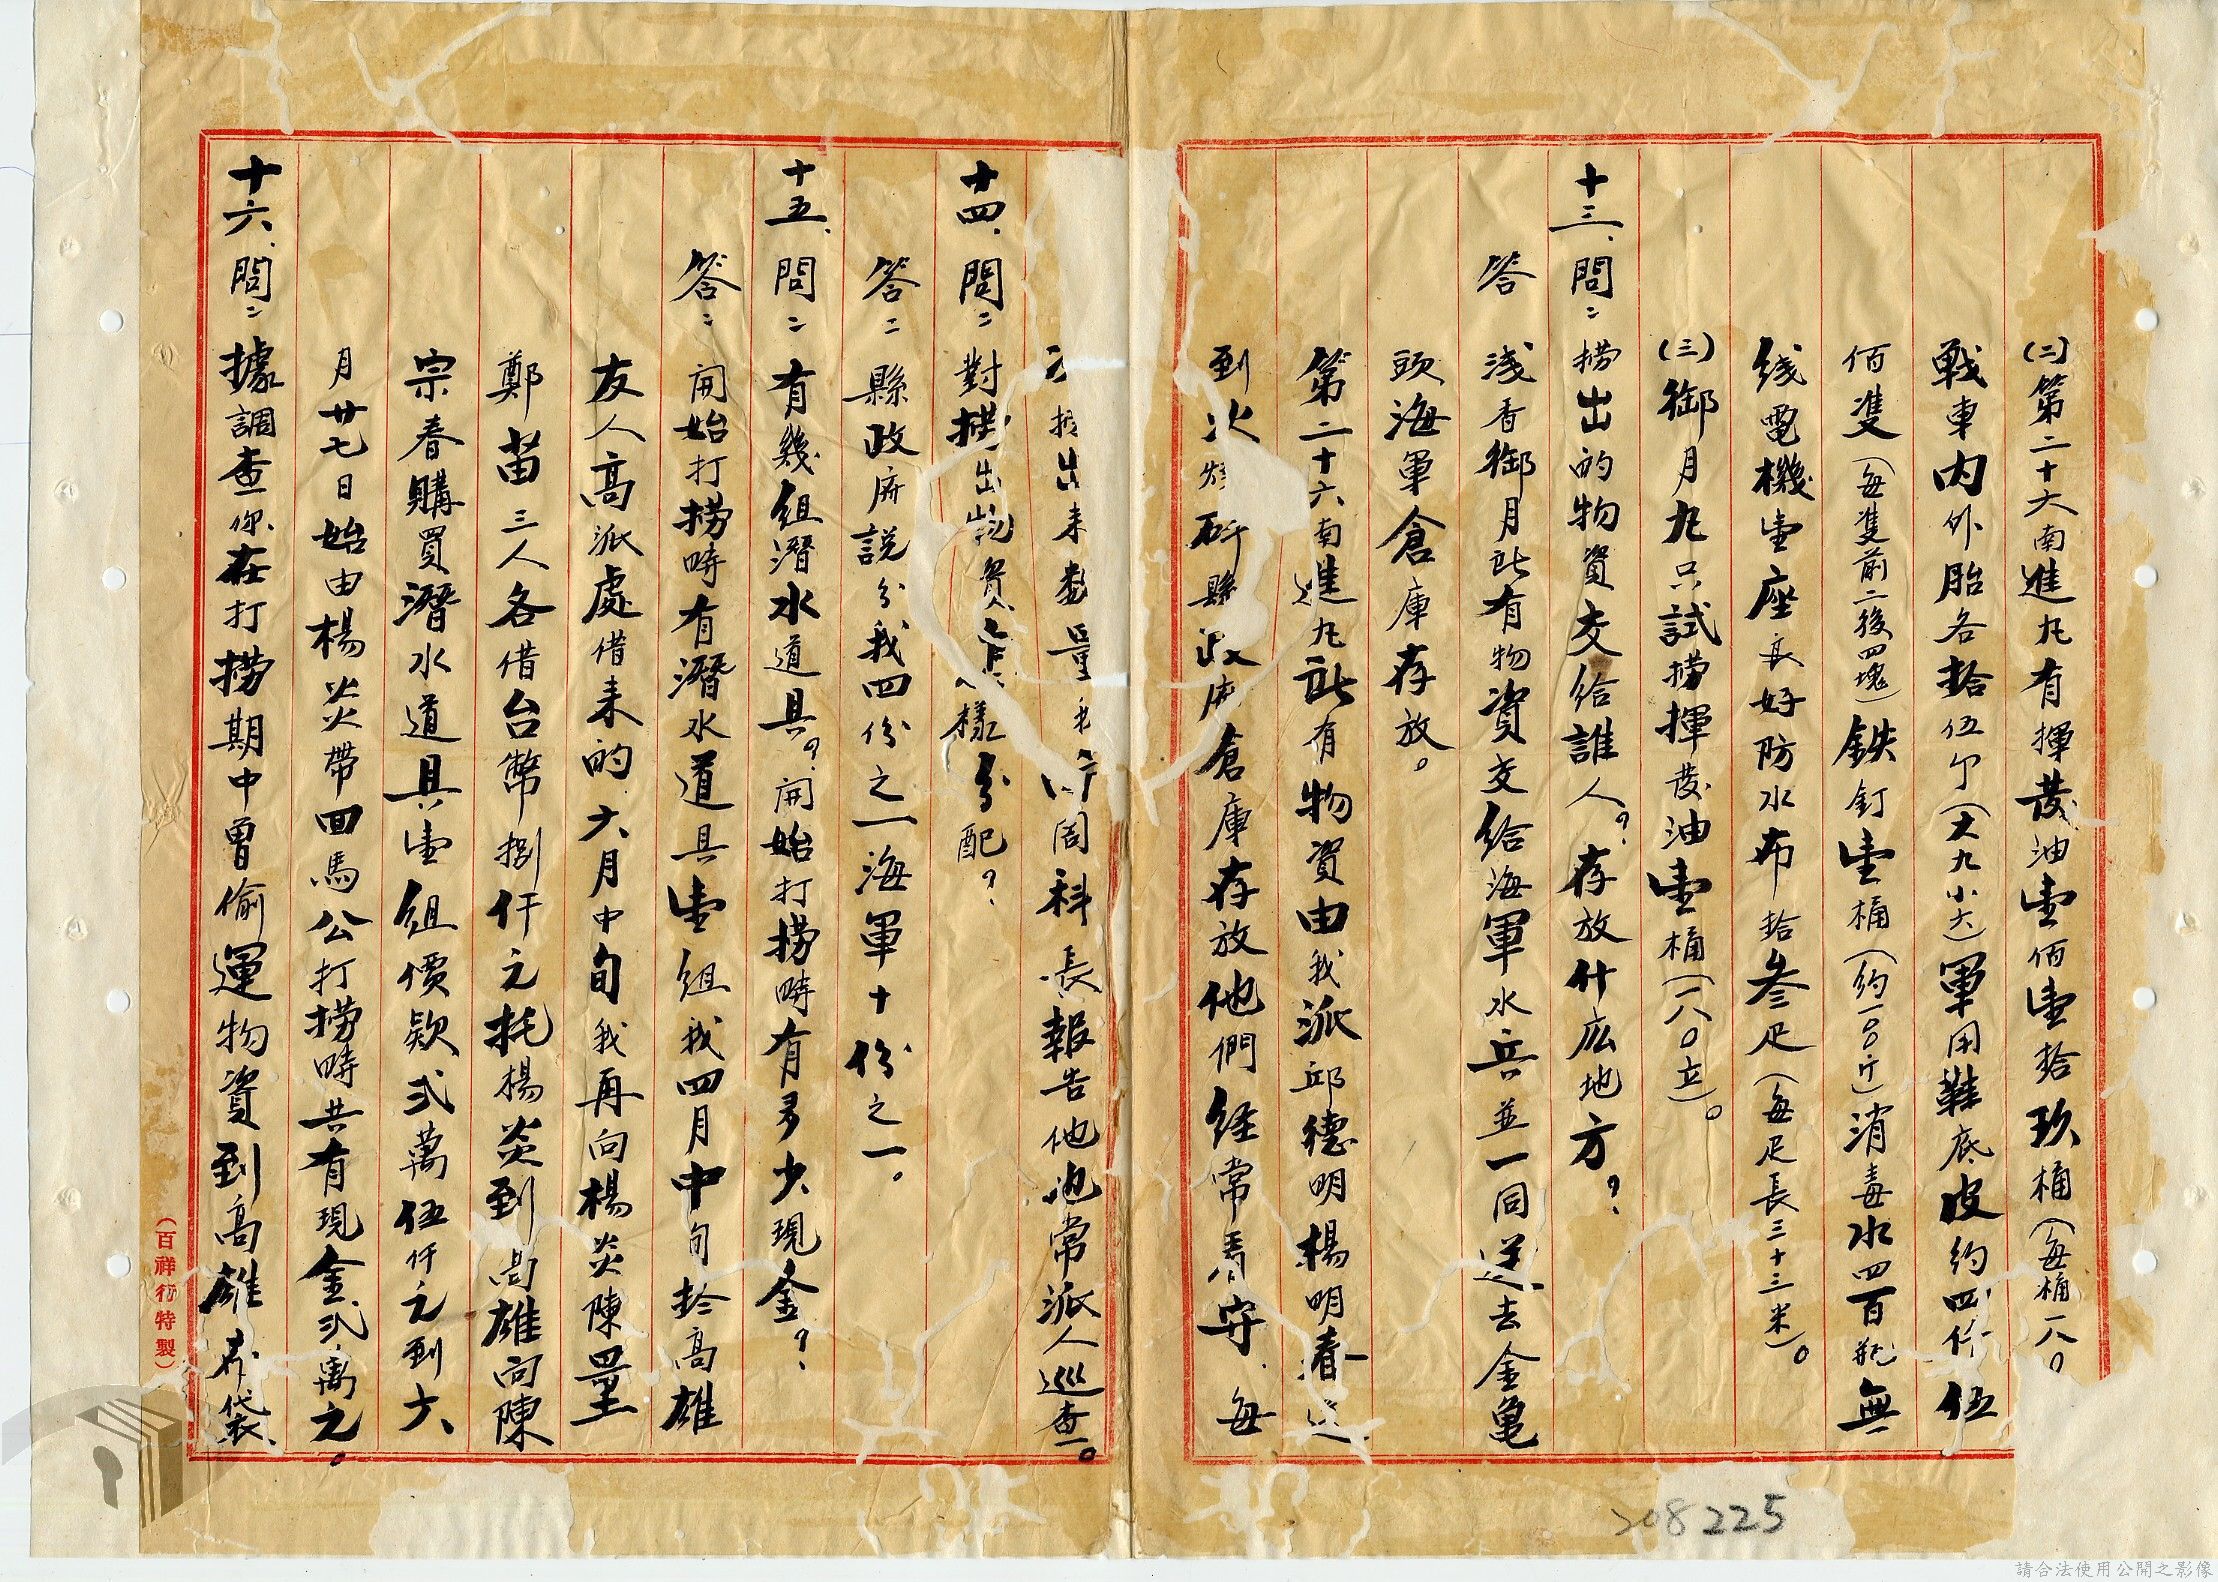 (二)第二十六南進丸有揮發油壹佰壹拾玖桶(每桶一八〇
戰車內外胎各拾伍个(大九小六)軍用鞋底皮約四仟伍
佰雙(每雙前二後四塊)鉄釘壹桶(約一〇〇斤)消毒水四百瓶無
线電機壹座良好防水布拾叁疋(每疋長三十三米)。
(三)御月丸只試撈揮發油壹桶(一八〇立)。
十三、問：撈出的物資交給誰人？存放什広地方？
答 浅香御月此有物資交給海軍水兵並一同送去金亀
頭海軍倉庫存放。
第二十六南進丸此有物資由我派邱德明楊明春送
到 縣政府倉庫存放他們経常看守、每
出来數量 周科長報告他也常派人巡查。
十四、問：對撈出物資怎樣分配？
答：縣政府説分我四份之一海軍十份之一。
十五、問：有幾組潛水道具？開始打撈時有多少現金？
答：開始打撈時有潛水道具壹組我四月中旬於高雄
友人高派處借来的六月中旬我再向楊炎陳量
鄭苗三人各借台幣捌仟元托楊炎到高雄向陳
宗春購買潛水道具壹組價欵弍萬伍仟元到六
月廿七日始由楊炎帶回馬公打撈時共有現金弍萬元。
十六、問：據調查你在打撈期中曾偷運物資到高雄布袋、
(百祥行特製)
208225
請合法使用公開之影像